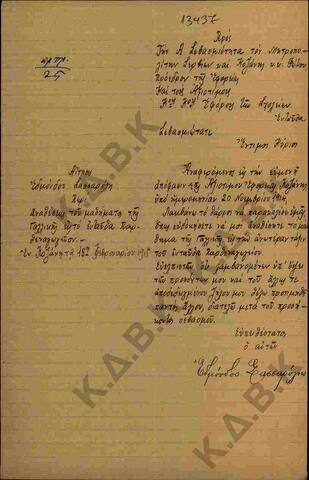 13437
Πρὸς
Τὴν Α. Σεβασμιότητα τὸν Μητροπο-
λίτην Σερβίων καὶ Κοζάνης κ.κ. Φώτιον
Πρόεδρον τῆς Ἐφορίας
Καὶ τοὺς Ἀξιοτίμους
Κους Κους Ἐφόρους τῶν Σχολείων
Ἐνταῦθα
Σεβασμιώτατε
Ἔντιμοι Κύριοι
Αἴτησις
Ἐδμόνδου Σασσαρόλη
Περὶ
Ἀναθέσεως τοῦ μαθήματος τῆς
Γαλλικῆς εἰς τὸ ἐνταῦθα Παρ-
θεναγωγεῖον.
Ἐν Κοζάνῃ τῇ 18ῃ Φεβρουαρίου 1915
Ἀναφερόμενος εἰς τὴν
ἀπόφασιν τῆς Ἀξιοτίμου Ἐφορίας Κοζάνης
ὑπὸ ἡμερομηνίαν 20 Νοεμβρίου 1914,
Λαμβάνω τὸ θάρρος νὰ παρακαλέσω ὑμᾶς
ὅπως εὐδοκήσητε νὰ μοὶ ἀναθέσητε τὸ μά-
θημα τῆς Γαλλικῆς εἰς τὴν ἀνωτέραν τάξιν
τοῦ ἐνταῦθα Παρθεναγωγείου.
Εὐελπιστῶν ὅτι λαμβανομένων ὑπ' ὄψει
τῶν προσόντων μου καὶ τοῦ ἄλλως τε
ἀποδεδειγμένου ζήλου μου θέλω προτιμηθῆ
παντὸς ἄλλου, διατελῶ μετὰ τοῦ προσή-
κοντος σεβασμοῦ.
Εὐπειθέστατος
ὁ αἰτῶν
Ἐδμόνδος Σασσαρόλης
Κ.Δ.Β.Κ